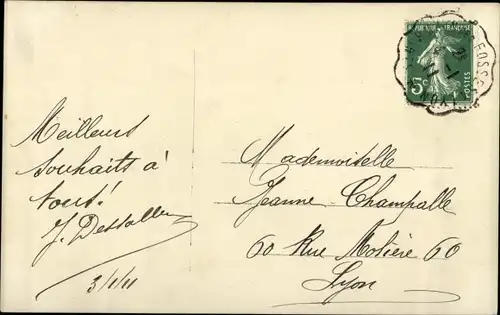 REPUBLIQUE FRANÇAISE
5c
POSTES
FOSSE
LYON
Meilleurs
souhaits à
tous!
3/1/11
Mademoiselle
Jeanne Champalle
60 Rue Molière 60
Lyon